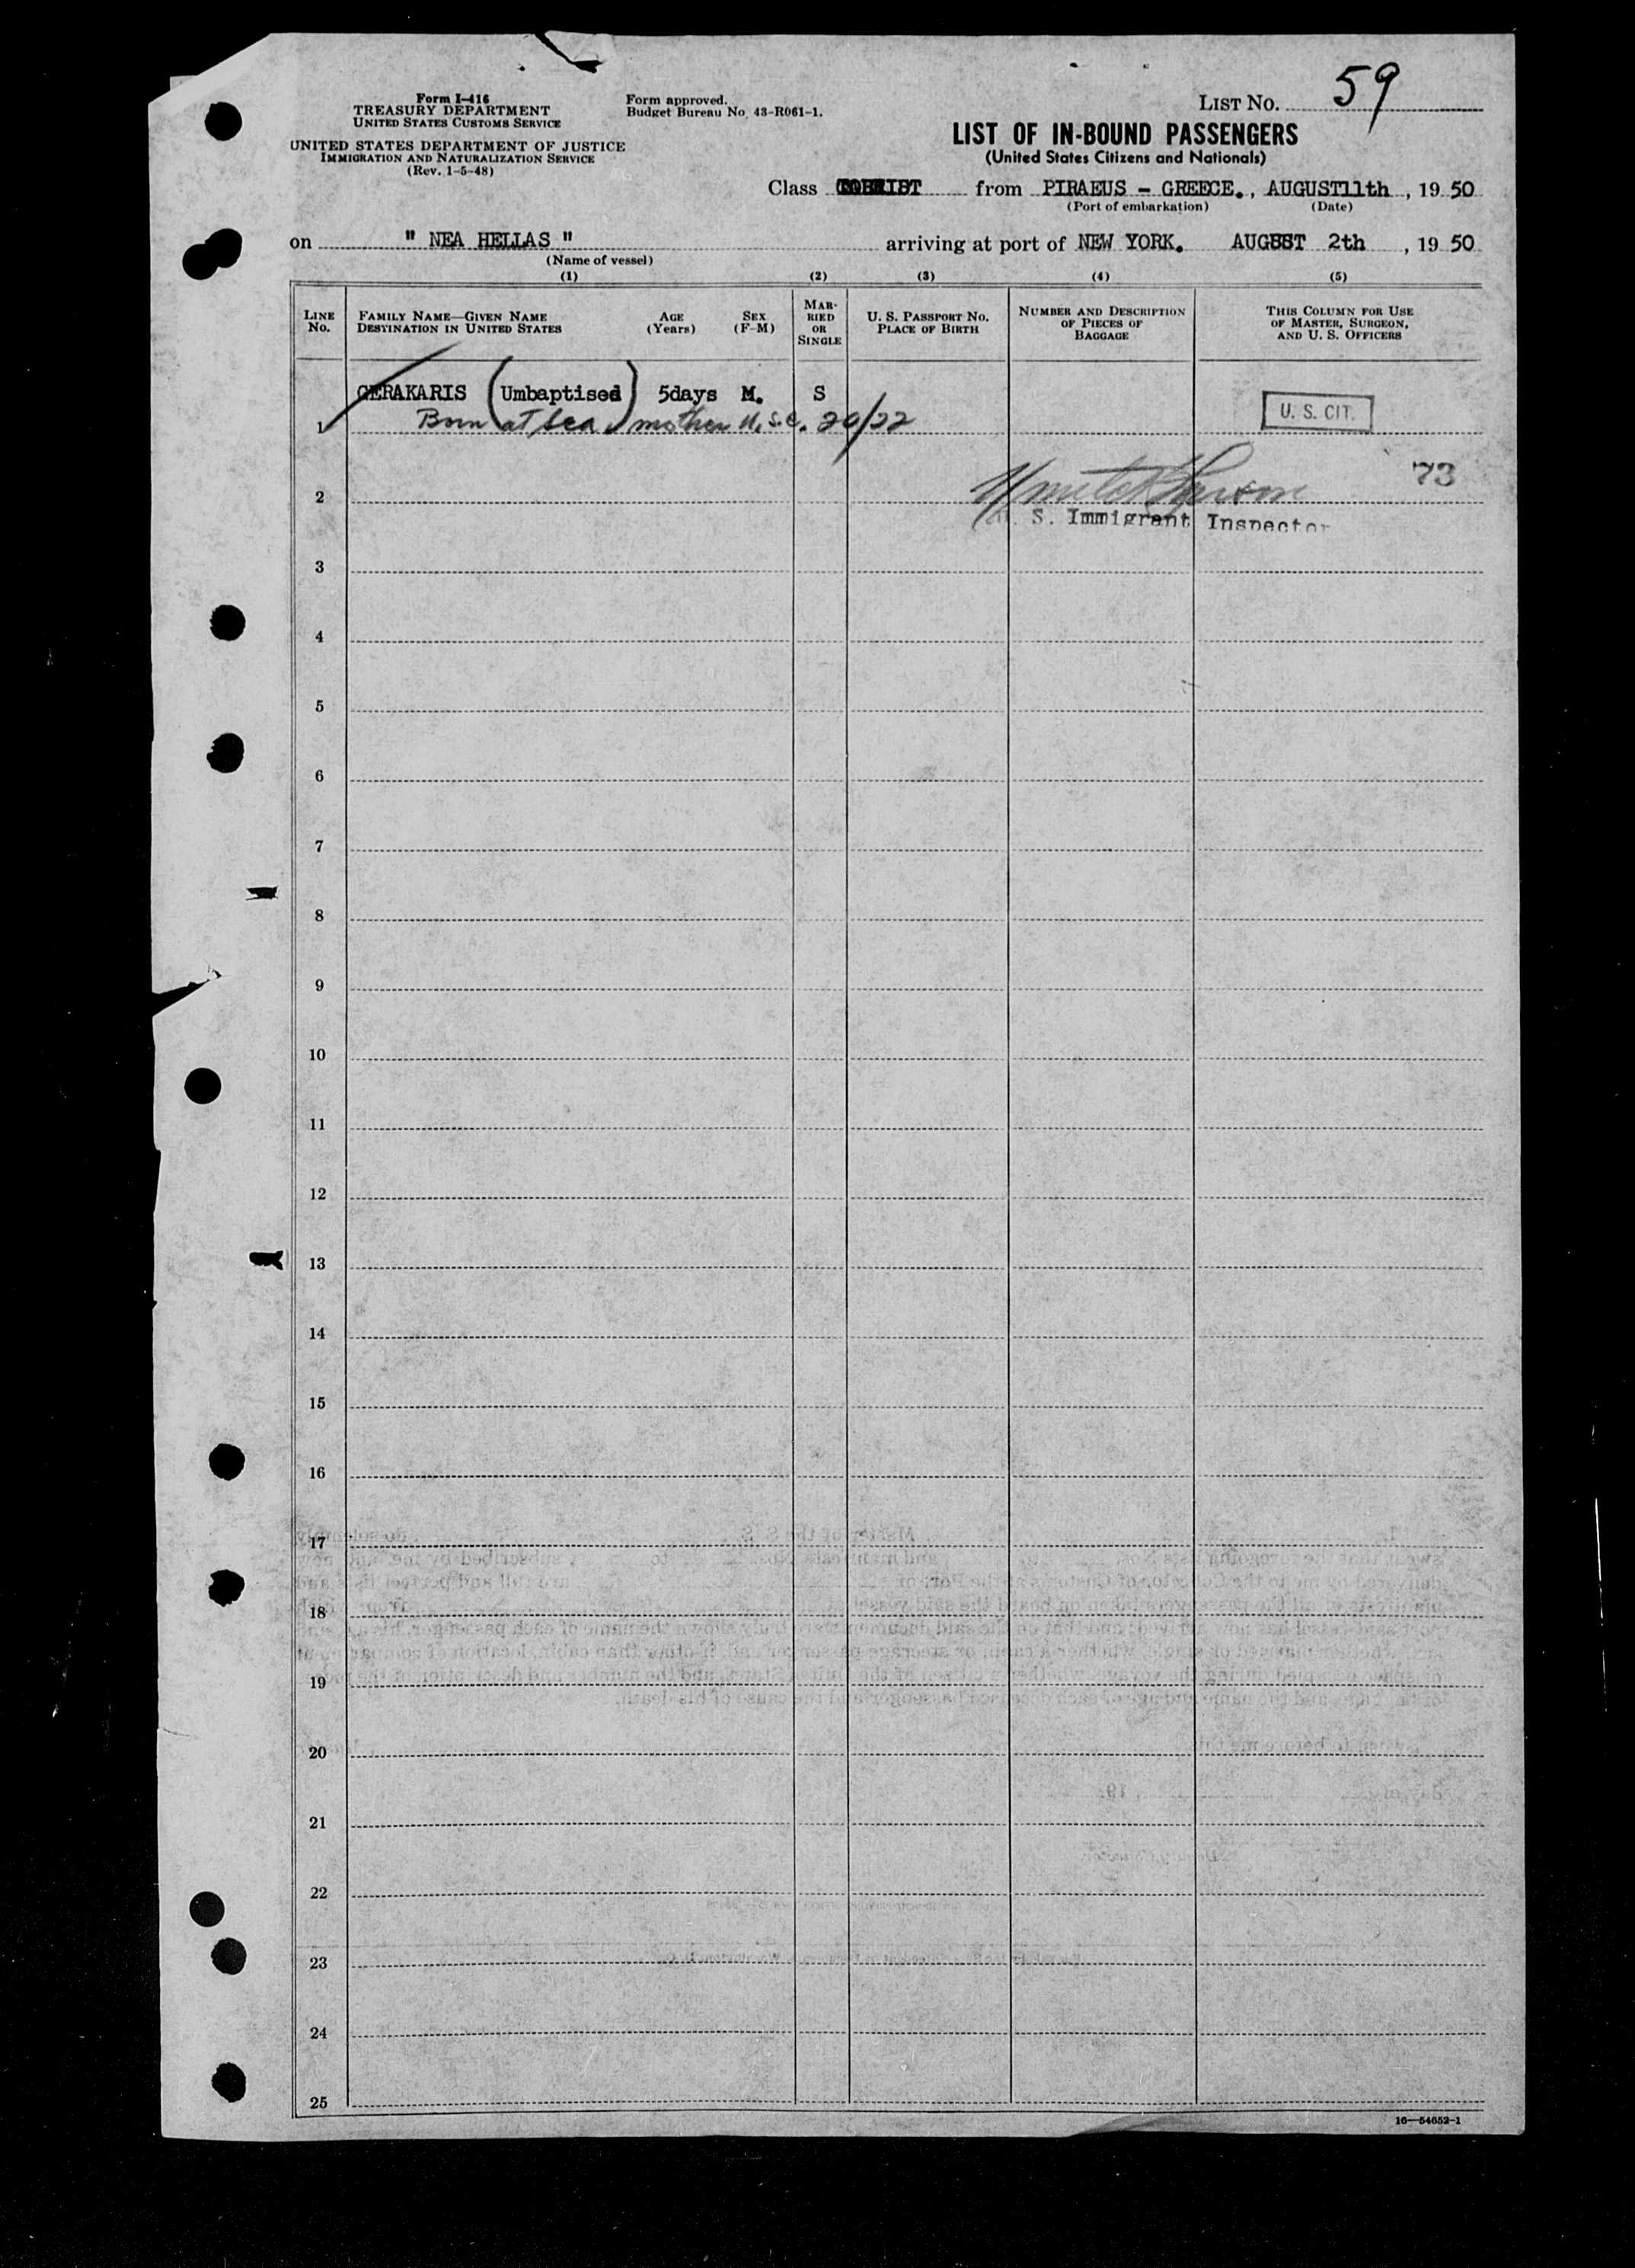 LIST NO. 59
Form I-416
TREASURY DEPARTMENT
UNITED STATES CUSTOMS SERVICE
UNITED STATES DEPARTMENT OF JUSTICE
IMMIGRATION AND NATURALIZATION SERVICE
(Rev. 1-5-48)
Form approved.
Budget Bureau No. 43-R061-1.
LIST OF IN-BOUND PASSENGERS
(United States Citizens and Nationals)
Class from PIRAEUS - GREECE., AUGUST11th, 19 50
(Port of embarkation) (Date)
on " NEA HELLAS " arriving at port of NEW YORK. AUGUST 2th, 19 50
(Name of vessel)
(1) (2) (3) (4) (5)
LINE No.
FAMILY NAME—GIVEN NAME
DESTINATION IN UNITED STATES
AGE
(Years)
SEX
(F-M)
MAR-
RIED
OR
SINGLE
U. S. PASSPORT NO.
PLACE OF BIRTH
NUMBER AND DESCRIPTION
OF PIECES OF
BAGGAGE
THIS COLUMN FOR USE
OF MASTER, SURGEON,
AND U. S. OFFICERS
GERAKARIS (Umbaptised) 5days M. S
U. S. CIT.
1 Born at sea mother U.S.C. 20/22
2 73
S. Immigrant Inspector
3
4
5
6
7
8
9
10
11
12
13
14
15
16
17
18
19
20
21
22
23
24
25
16—54652-1